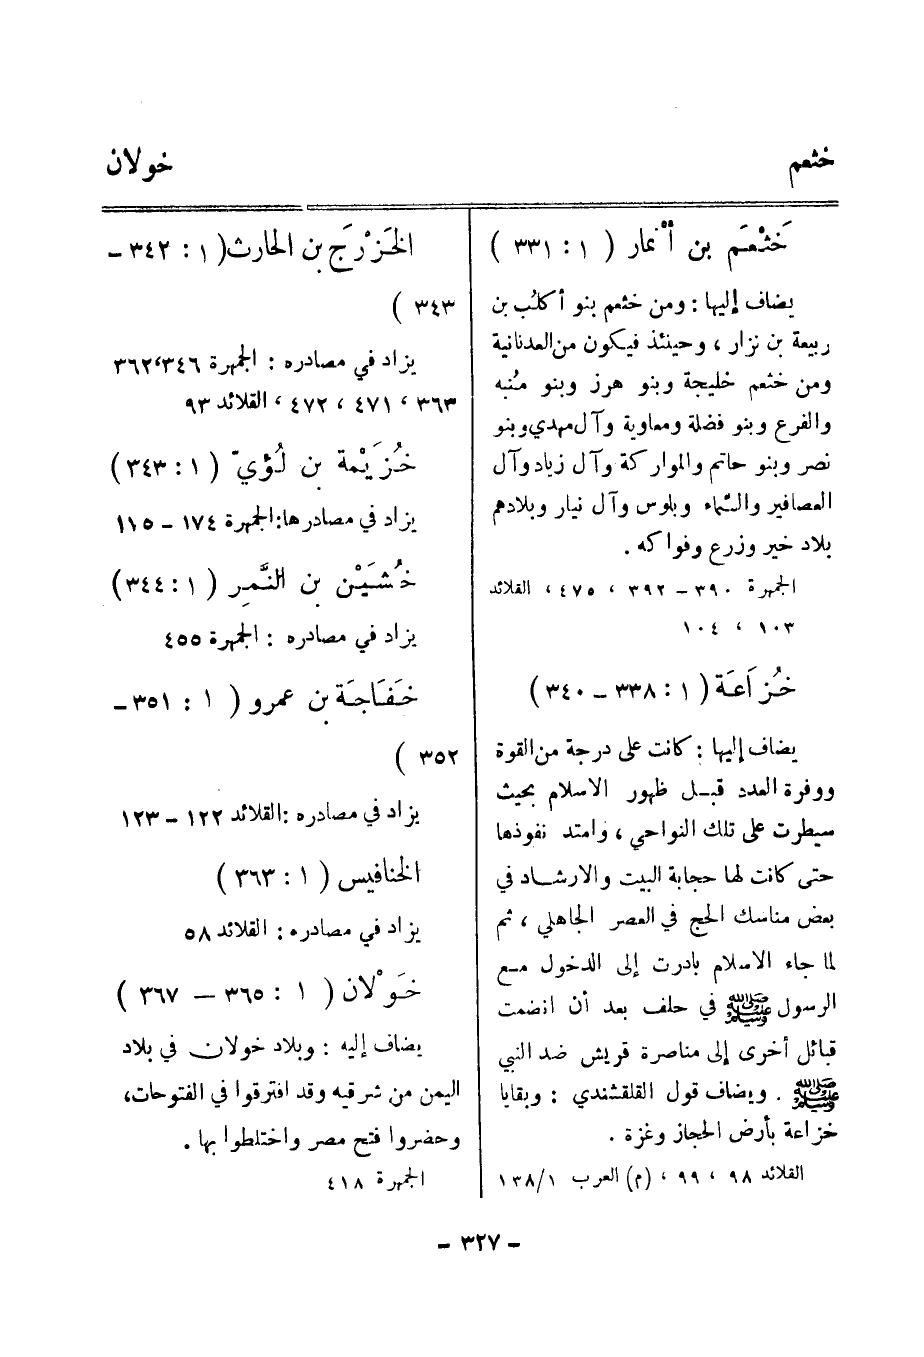 خثعم
خولان
خَثْعَم بن أنمار ( ١ : ٣٣١ )
يضاف إليها : ومن خثعم بنو أكلُب بن
ربيعة بن نزار ، وحينئذ فيكون من العدنانية
ومن خثعم خليجة وبنو هرز وبنو منُبه
والفرع وبنو فضلة ومعاوية وآل مهدي وبنو
نصر وبنو حاتم والموار كة وآل زياد وآل
العصافير والشماء وبلوس وآل نيار وبلادهم
بلاد خير وزرع وفوا كه .
الجمهرة ٣٩٠ – ٣٩٢ ، ٤٧٥ ، القلائد
١٠٣ ، ١٠٤
خُزاعَة ( ١ : ٣٣٨ – ٣٤٠ )
يضاف إليها : كانت على درجة من القوة
ووفرة العدد قبـل ظهور الاسلام بحيث
سيطرت على تلك النواحي ، وامتد نفوذها
حتى كانت لها حجابة البيت والارشـاد في
بعض مناسك الحج في العصر الجاهلي ، ثم
لما جاء الاسلام بادرت إلى الدخول مـع
الرسول ﷺ في حلف بعد أن انضمت
قبائل أخرى إلى مناصرة قريش ضد النبي
ﷺ . ويضاف قول القلقشندي : وبقايا
خزاعة بأرض الحجاز وغزة .
القلائد ٩٨ ، ٩٩ ، (م) العرب ١٣٨/١
الخَزْرَج بن الحارث ( ١ : ٣٤٢ –
٣٤٣ )
يزاد في مصادره : الجمهرة ٣٤٦،٣٦٢
٣٦٣ ، ٤٧١ ، ٤٧٢ ، القلائد ٩٣
خُزَيْمة بن لُؤيّ ( ١ : ٣٤٣ )
يزاد في مصادرها:الجمهرة ١٧٤ – ١١٥
خُشَيْن بن النَّمِر ( ١ : ٣٤٤ )
يزاد في مصادره : الجمهرة ٤٥٥
خَفَاجَة بن عمرو ( ١ : ٣٥١ –
٣٥٢ )
يزاد في مصادره :القلائد ١٢٢ – ١٢٣
الخنافيس ( ١ : ٣٦٣ )
يزاد في مصادره : القلائد ٥٨
خَوْلان ( ١ : ٣٦٥ – ٣٦٧ )
يضاف إليه : وبلاد خولان في بلاد
اليمن من شرقيه وقد افترقوا في الفتوحات،
وحضروا فتح مصر واختلطوا بها .
الجمهرة ٤١٨
– ٣٢٧ –